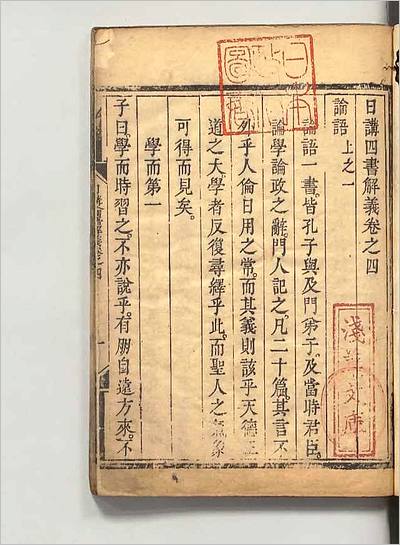 日講四書解義卷之四
論語 上之一
論語一書皆孔子與及門弟子及當時君臣
論學論政之辭門人記之凡二十篇其言不
外乎人倫日用之常而其義則該乎天德王
道之大學者反復尋繹乎此而聖人之氣象
可得而見矣
學而第一
子曰學而時習之不亦說乎有朋自遠方來不
淺草文庫
日本
圖書